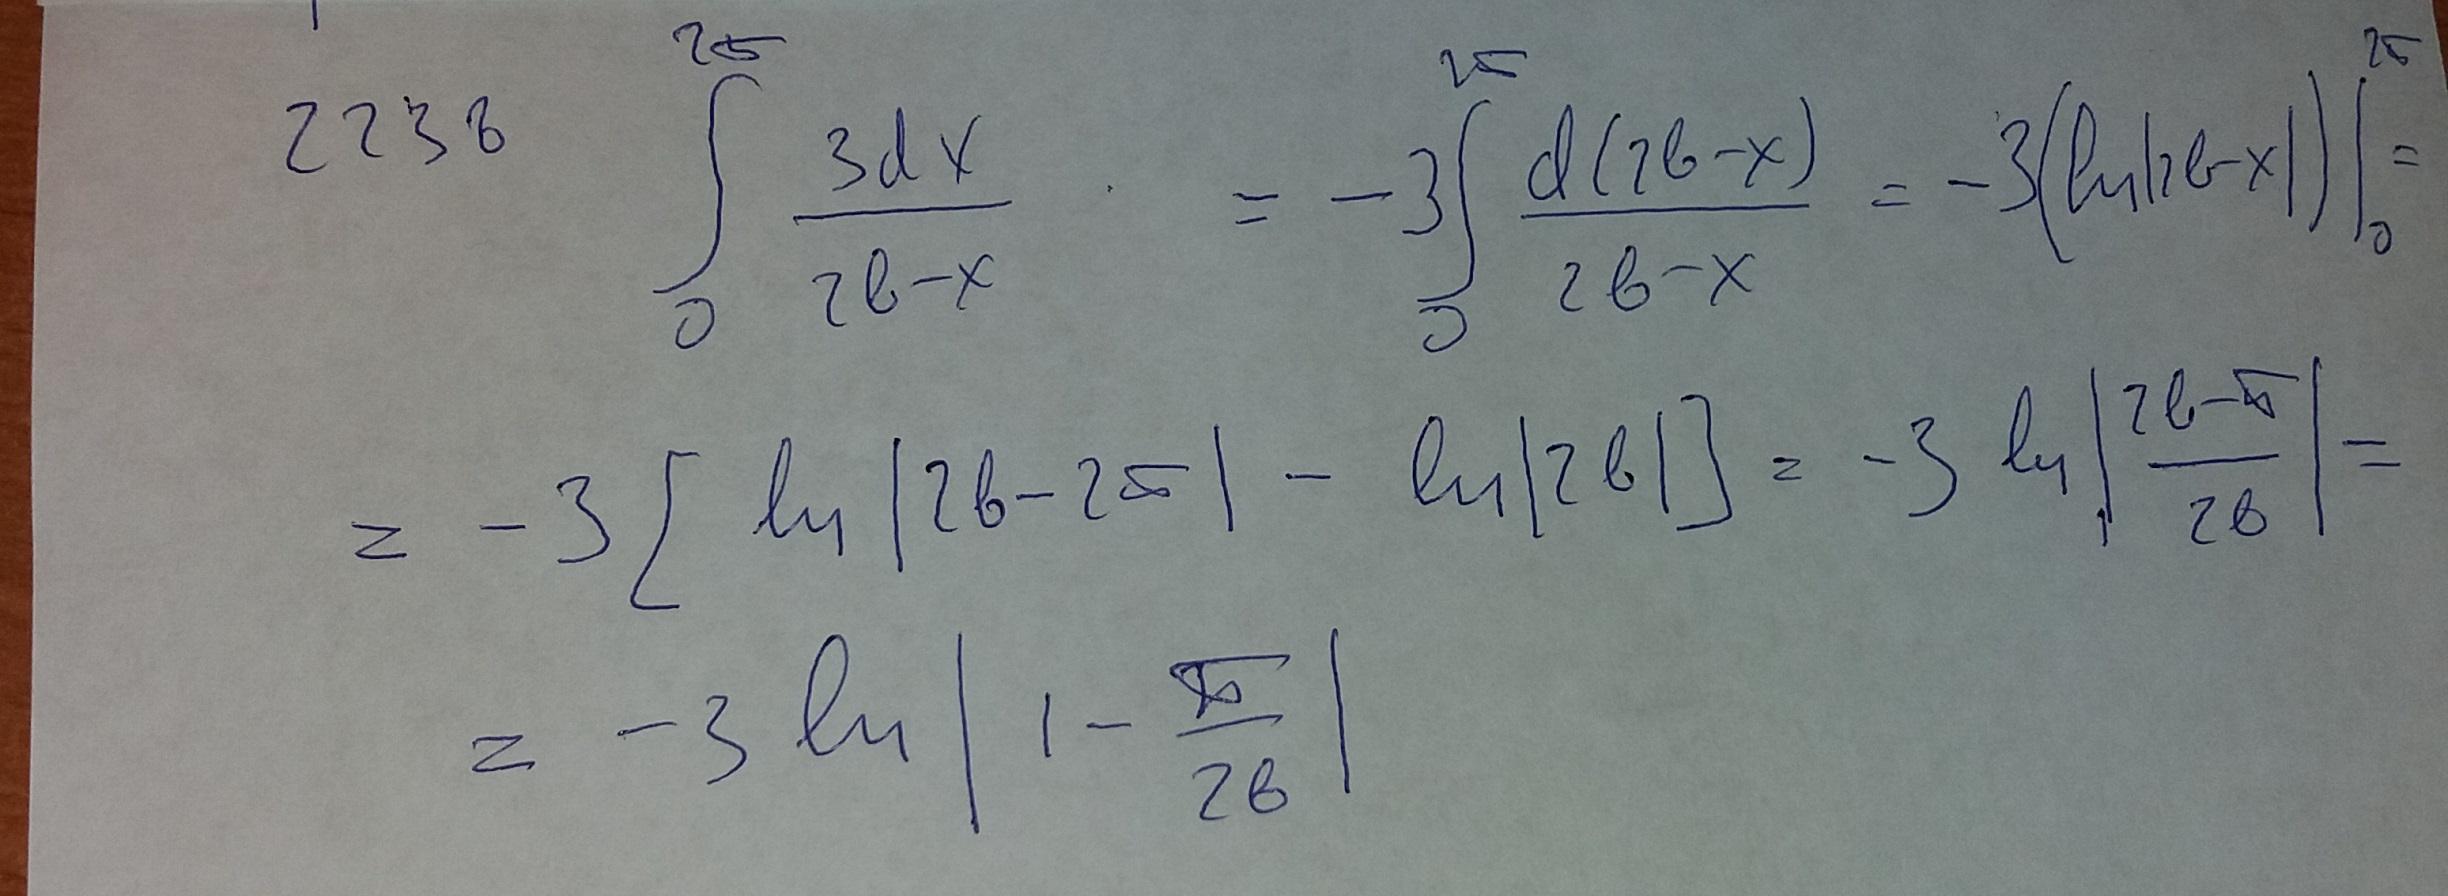 2236 ∫₀²⁵ 3dx/(26-x) = -3∫₀²⁵ d(26-x)/(26-x) = -3(ln|26-x|)|₀²⁵ =
= -3[ln|26-25| - ln|26|] = -3 ln|(26-25)/26| =
= -3 ln|1-25/26|